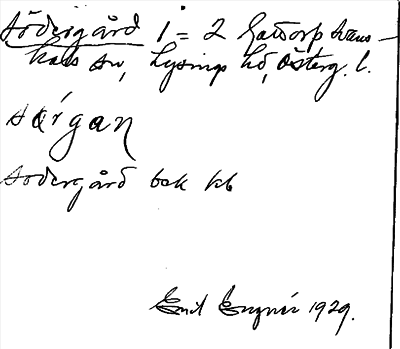 Södergård 1 = 2 Gattorp Väns-
kals sn, Lysings hd, Österg. l.
sörgan
Södergård bok kb
Emil 1929.